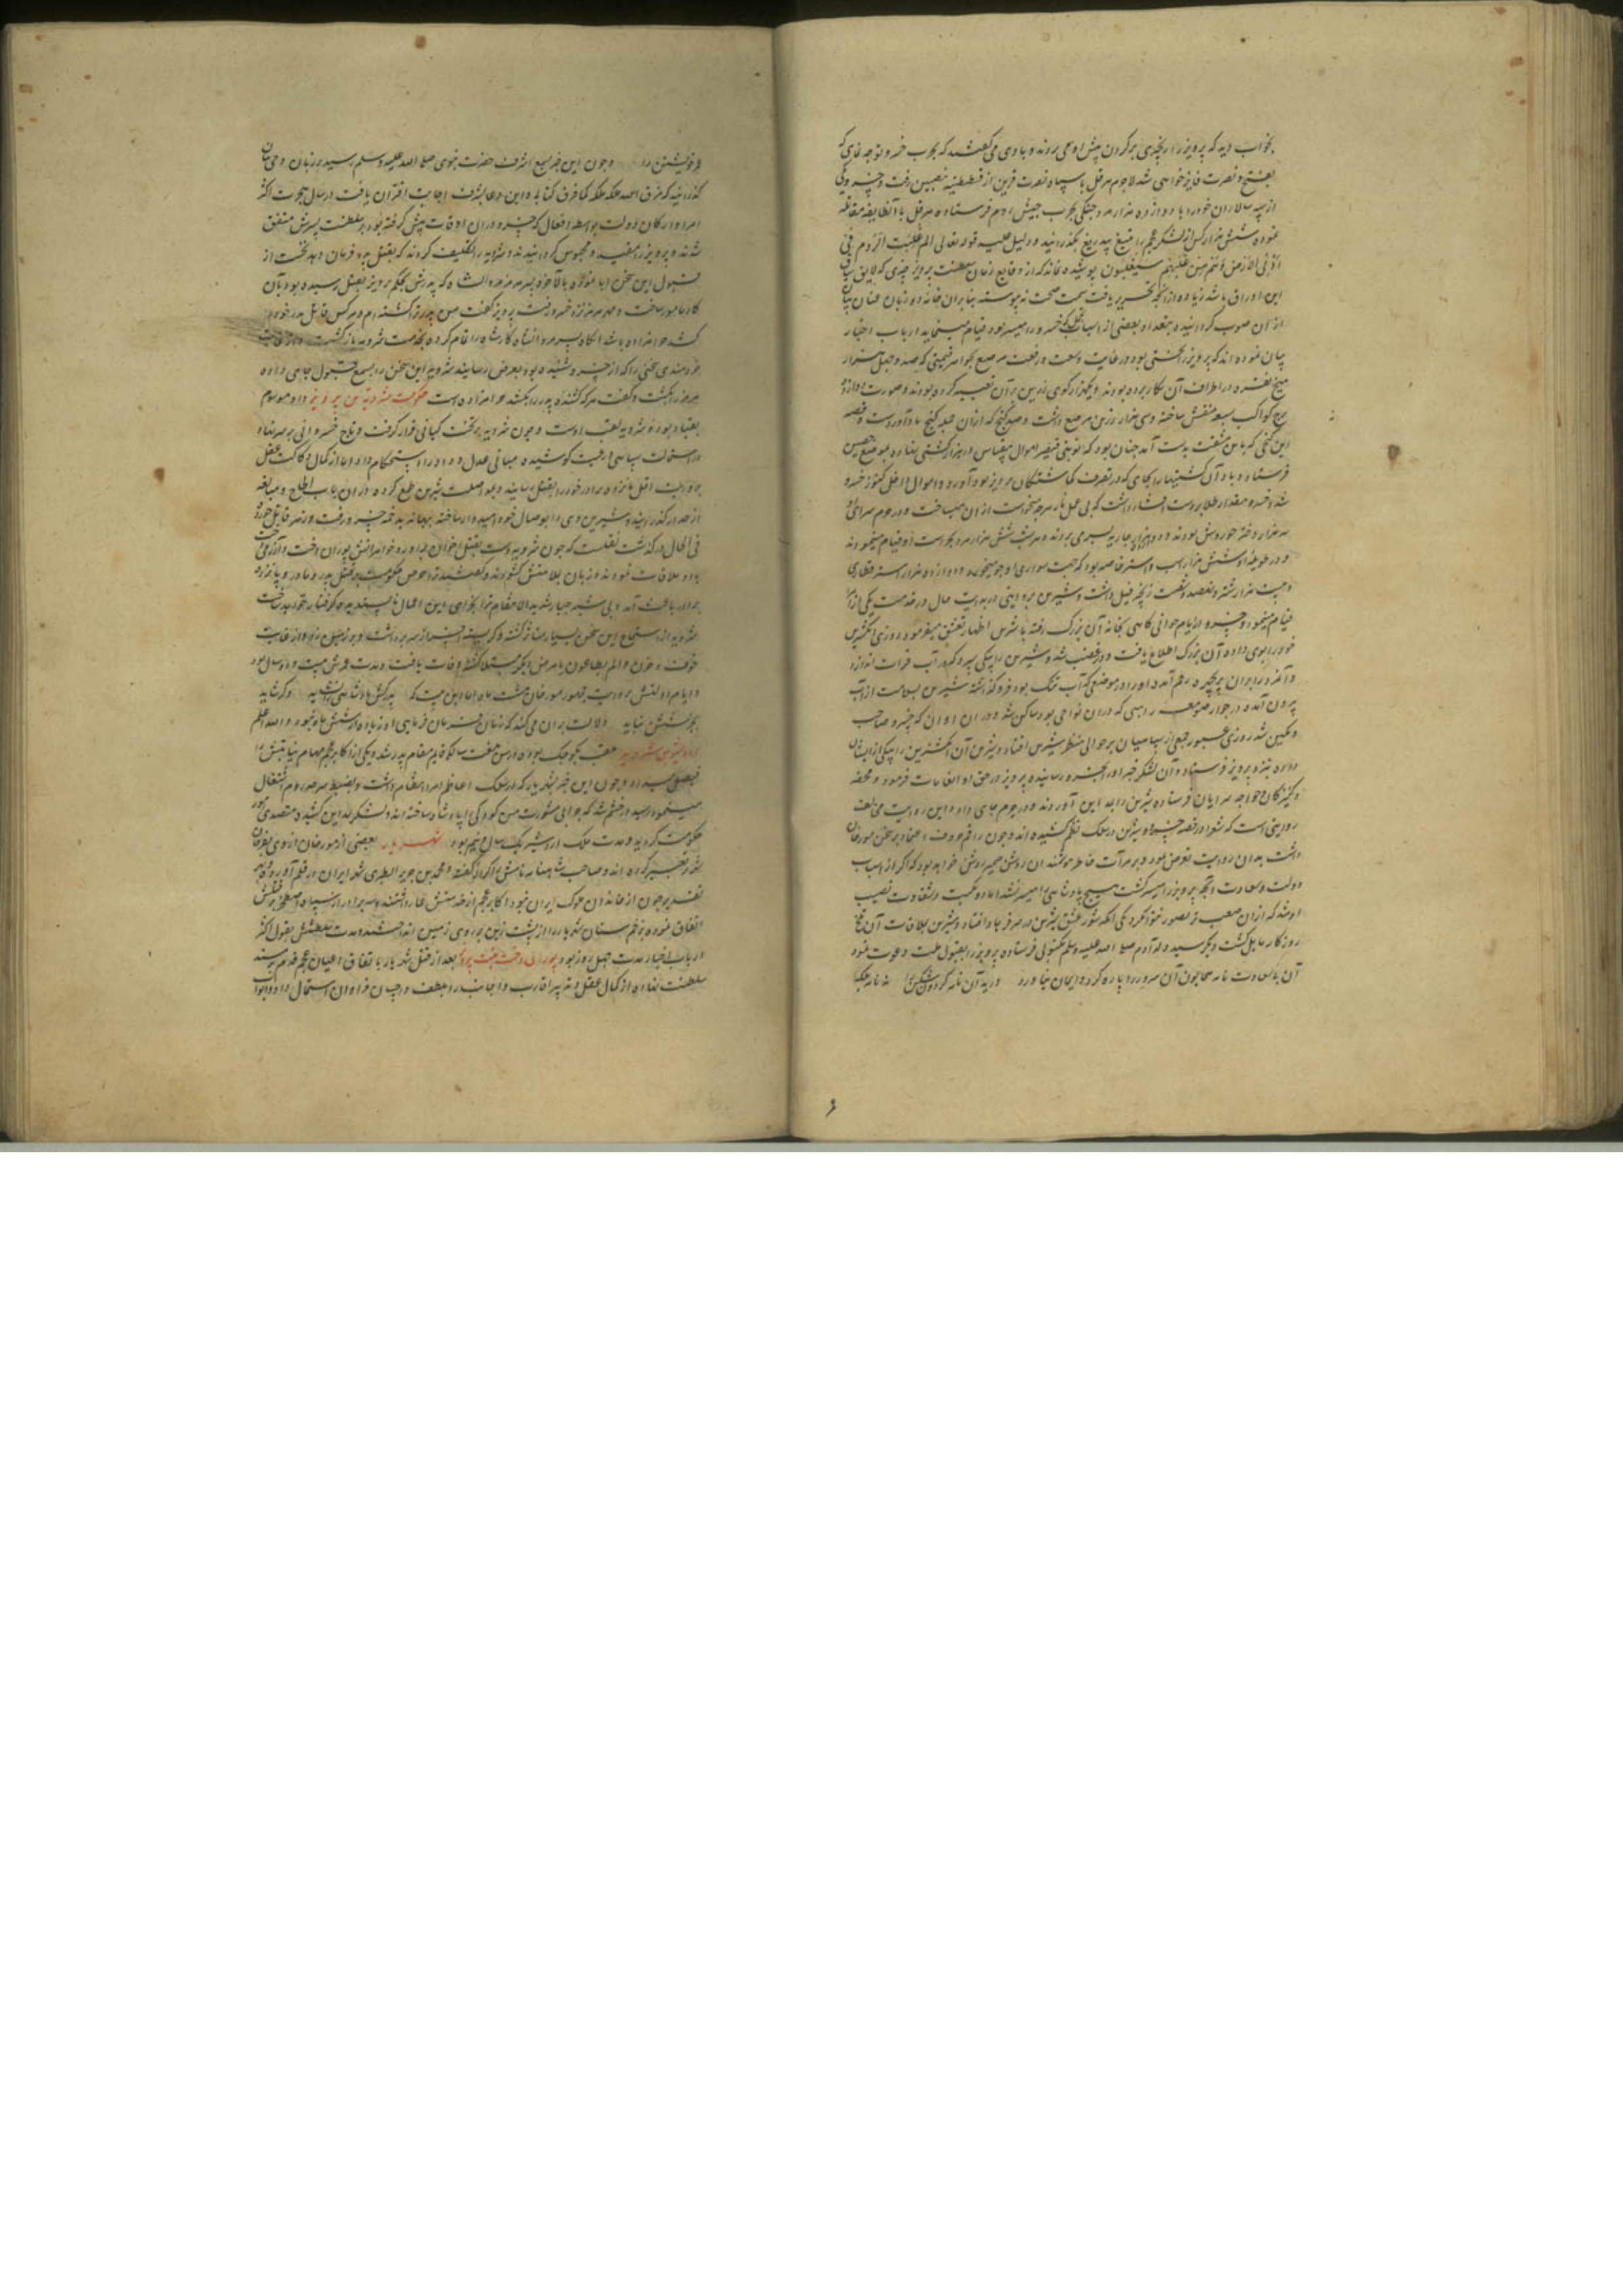 بخواب دید که پرویز را زنجیری بر گردن پیش او می بردند و با وی می گفتند که بحرب خسرو توجه نمای که
بفتح و نصرت فایز خواهی شد لاجرم هرقل با سپاه نصرت قرین از قسطنطنیه بنصیبین رفت و خسرو یکی
از سپه سالاران خود را با دوازده هزار مرد جنکی بحرب جیش روم فرستاده هرقل با آن طایفه مقاتله
نموده شش هزار کس از لشکر عجم را بتیغ بیدریغ بگذرانید و دلیل علیه قوله تعالی الم غلبت الروم فی
ادنی الارض و هم من بعد غلبهم سیغلبون پوشیده نماند که از وقایع زمان سلطنت پرویز چیزی که لایق سیاق
این اوراق باشد زیاده از آنچه تحریر یافت سمت صحت نه پیوسته بنابران خامه دو زبان عنان بیان
از آن صوب کردانیده بتعداد بعضی از اسباب تجمل که خسرو را میسر بود قیام می نماید ارباب اخبار
بیان نموده اند که پرویز را تختی بود در غایت وسعت و رفعت مرصع بجواهر قیمتی که صد و چهل هزار
میخ نقره در اطراف آن بکار برده بودند و یکهزار کوی زرین بر آن تعبیه کرده بودند و صورت دوازده
برج کواکب سبعه منقش ساخته و سی هزار زین مرصع داشت و صد کنج که از آن جمله کنج باد آورد است و قصه
این کنجی که باین مشقت بدست آمد چنان بود که نوبتی قیصر اموال بیقیاس در هزار کشتی نهاده بموضع حصین
فرستاد و باد آن کشتیها را بجای که در تصرف کماشتکان پرویز بود آورد و اموال داخل کنوز خسرو
شد و خسرو مقدار طلا بر دست افشار داشت که بی عمل نار هر چه میخواست از آن میساخت و در حرم سرای او
سه هزار دختر حوروش بودند و دوازده هزار جاریه بسر می بردند و هر شب شش هزار مرد بحراست او قیام مینمودند
و در طویله او شش هزار اسب و استر خاصه بود که جهت سواری او جو میخوردند و دوازده هزار استر قطاری
و بیست هزار شتر و نهصد و شصت زنجیر فیل داشت و شیرین بروایتی در بدایت حال در خدمت یکی از اکابر
قیام مینمود و خسرو در ایام جوانی کاهی بخانه آن بزرک رفته با شیرین اظهار تعشق میفرمود و روزی انکشترین
خود را بوی داده آن بزرک اطلاع یافت و در غضب شد و شیرین را بیکی سپرد که در آب فرات اندازد
و آنمرد را بر آن پریچهره رحم آمده او را در موضعی که آب تنک بود فرو کذاشته شیرین بسلامت از آب
بیرون آمده در جوار صومعه راهبی که در آن نواحی بود ساکن شد و در آن اوان که خسرو صاحب
و تمکین شد روزی عبور جمعی از سپاهیان بر حوالی منظر شیرین افتاد و شیرین آن انکشترین را بیکی از ایشان
داده نزد پرویز فرستاد و آن لشکر خبر او را بخسرو رسانیده پرویز در حق او انعامات فرمود و محفه
و کنیزکان و خواجه سرایان فرستاده شیرین را بمداین آوردند و در حرم جای داد و این روایت مخالف
روایتی است که شعرا در قصه خسرو و شیرین در سلک نظم کشیده اند و چون راقم حروف اعتماد بر سخن مورخان
داشت بدان روایت تعرض ننمود و بر مرآت خاطر هوشمندان روشن ضمیر روشن خواهد بود که اکر از اسباب
دولت و سعادت آنچه پرویز را میسر کشت هیچ پادشاهی را میسر نشد اما دو نکبت و شقاوت نصیب
او شد که از آن صعب تر تصور نتوان کرد یکی آنکه شور عشق شیرین در سر فرهاد افتاد و شیرین بملاقات آن تلخ
روزکار مایل کشت و دیکر سید ولد آدم صلی الله علیه وسلم مکتوبی فرستاده پرویز را بقبول ملت دعوت نمود
آن بی سعادت نامه همایون آن سرور را پاره کرد و ایمان نیاورد درید آن نامه کردون شکن را نه نامه بلکه
و خویشتن را و چون این خبر بسمع اشرف حضرت نبوی صلی الله علیه وسلم رسید بر زبان وحی بیان
کذرانید که مزق الله ملکه کما مزق کتابی و این دعا بشرف اجابت اقتران یافت در سال هجرت اکثر
امرا و ارکان دولت بواسطه افعال که خسرو در آن اوقات پیش کرفته بود بر سلطنت پسرش متفق
شدند و پرویز را مقید و محبوس کردانیدند و شیرویه را تکلیف کردند که بقتل پدر فرمان دهد نخست از
قبول این سخن ابا نموده بالاخره پسر هرمز مردانشاه که پدرش بحکم پرویز بقتل رسیده بود بآن
کار مامور ساخت و مهر هرمز نزد خسرو رفت پرویز کفت من پدر ترا کشته ام و هر کس قاتل پدر خود را
نکشد حرامزاده باشد آنکاه پسر مردانشاه کار شاه را تمام کرده بخدمت شیرویه بازکشت و از غایت
خردمندی سخنی را که از خسرو شنیده بود بعرض رسانید شیرویه این سخن را بسمع قبول جای داده
مهر هرمز را بکشت و کفت هر که کشنده پدر را نکشد حرامزاده است حکومت شیرویه بن پرویز او موسوم
بقباد بود و شیرویه لقب اوست و چون شیرویه بر تخت کیانی قرار کرفت و تاج خسروانی بر سر نهاد
در استمالت سپاهی و رعیت کوشیده مبانی عدل و داد را استحکام داد اما از کمال رکاکت عقل
بروایت اقل پانزده برادر خود را بقتل رسانید و بمواصلت شیرین طمع کرده در آن باب الحاح و مبالغه
از حد در کذرانید و شیرین وی را بوصال خود امیدوار ساخته ببهانه بدخمه خسرو رفت و زهر قاتل خورده
فی الحال درکذشت نقلست که چون شیرویه دست بقتل اخوان برآورد خواهرانش پوران دخت و آزرمی دخت
با او ملاقات نمودند و زبان بملامتش کشودند و کفتند ترا حرص حکومت بر قتل پدر و مادر و پانزده
برادر باعث آمد و بی شبهه جبار شدید الانتقام ترا بجزای این اعمال ناپسندیده کرفتار خواهد ساخت
شیرویه از استماع این سخن بسیار متاثر کشته و کریسته افسر از سر برداشت و بر زمین زد و از غایت
خوف و حزن و الم بطاعون یا مرض دیکر مبتلا کشته وفات یافت و مدت عمرش بیست و دو سال بود
و ایام دولتش بروایت جمهور مورخان هشت ماه اما این بیت که پدرکش پادشاهی را نشاید وکر شاید
بجز شش مه نپاید دلالت بر آن می کند که زمان فرمان فرمایی او زیاده از شش ماه نبود والله اعلم
اردشیر بن شیرویه بلقب بکوچک بود در سن هفت سالکی قایم مقام پدر شد و یکی از اکابر عجم مهام بنیابتش را
فیصل میداد و چون این خبر بشهریار که در سلک اعاظم امرا انتظام داشت و بضبط سرحد روم اشتغال
مینمود رسید در خشم شد که چرا بی مشورت من کودکی را پادشاه ساخته اند و لشکر بمداین کشید و متصدی امور
حکومت کردید و مدت ملک اردشیر یکسال و نیم بود شهریار بعضی از مورخان از وی بفرخان
تعبیر کرده اند و صاحب شاهنامه نامش را کراز کفته و محمد بن جریر الطبری شهر ایران در قلم آورده و بهر
تقدیر چون از خاندان ملوک ایران نبود اکابر عجم از خدمتش عار داشتند و سه برادر از سپاه اصطخر بر قتلش
اتفاق نموده بزخم سنان شهریار را از پشت زین بر روی زمین انداختند و مدت سلطنتش بقول اکثر
ارباب اخبار مدت چهل روز بود پوران دخت بنت پرویز بعد از قتل شهریار باتفاق اعیان عجم قدم بر مسند
سلطنت نهاده از کمال عقل و تدبیر اقارب و اجانب را بلطف و احسان فراوان استمالت داد و ابواب